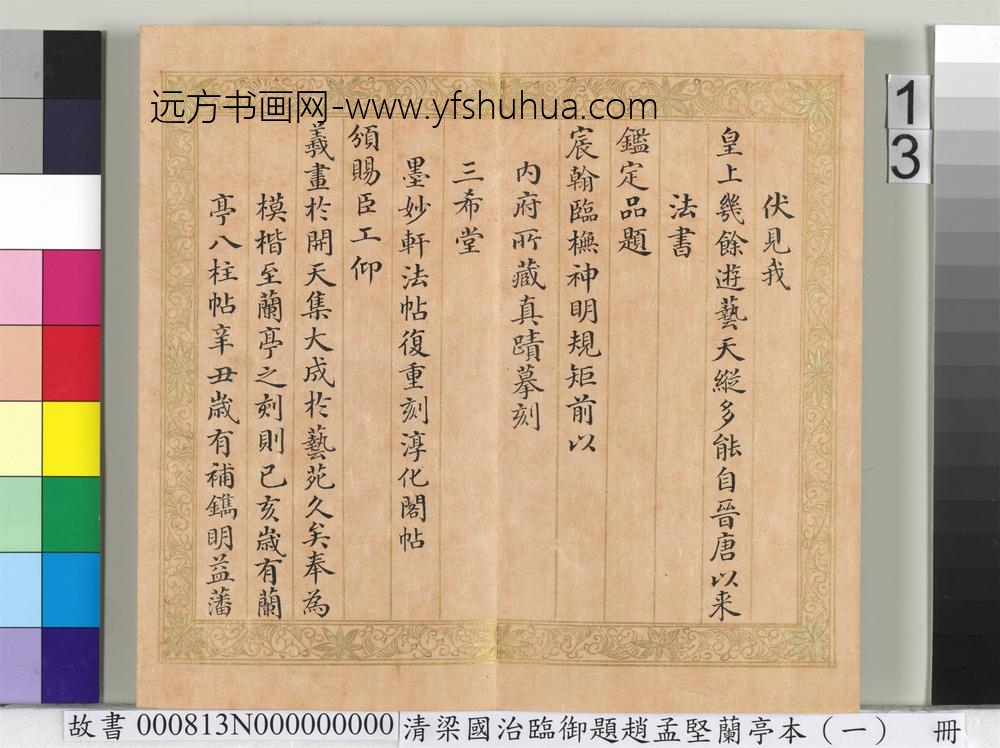 远方书画网-www.yfshuhua.com
伏見我
皇上幾餘遊藝天縱多能自晉唐以来
法書
鑑定品題
宸翰臨橅神明規矩前以
内府所藏真蹟摹刻
三希堂
墨妙軒法帖復重刻淳化閣帖
頒賜臣工仰
羲畫於開天集大成於藝苑久矣奉為
模楷至蘭亭之刻則已亥歳有蘭
亭八柱帖辛丑歳有補鐫明益藩
13
故書 000813N000000000 清梁國治臨御題趙孟堅蘭亭本（一） 冊